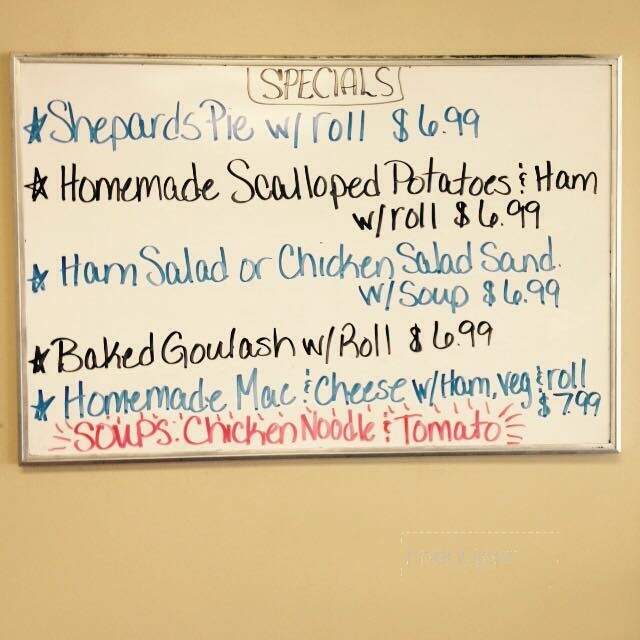 SPECIALS
☆ Shepards Pie w/ roll $6.99
☆ Homemade Scalloped Potatoes & Ham
w/roll $6.99
☆ Ham Salad or Chicken Salad Sand.
w/ Soup $6.99
☆ Baked Goulash w/ Roll $6.99
☆ Homemade Mac & Cheese w/ Ham, veg & roll
$7.99
SOUPS: Chicken Noodle & Tomato